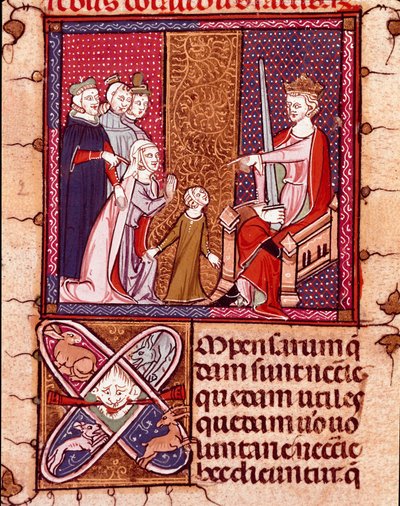 Mpensarum q
dam sunt neccie
quedam utiles
quedam uo uo
luntarie neccie
hee dicuntur. q